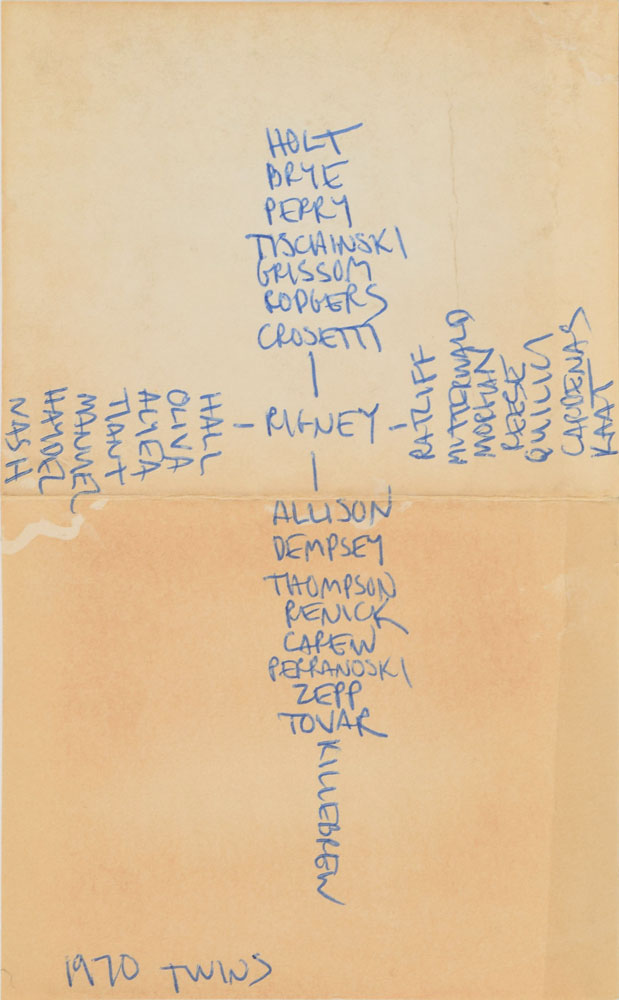 HOLT
BRYE
PERRY
TISCHINSKI
GRISSOM
RODGERS
CROSETTI
RIGNEY
HALL
OLIVA
ALYEA
TIANT
MANUEL
HAYDEL
NASH
RATLIFF
MITTERWALD
MORHAN
REESE
QUILICI
CARDENAS
KAAT
ALLISON
DEMPSEY
THOMPSON
RENICK
CAREW
PERRANOSKI
ZEPP
TOVAR
KILLEBREW
1970 TWINS